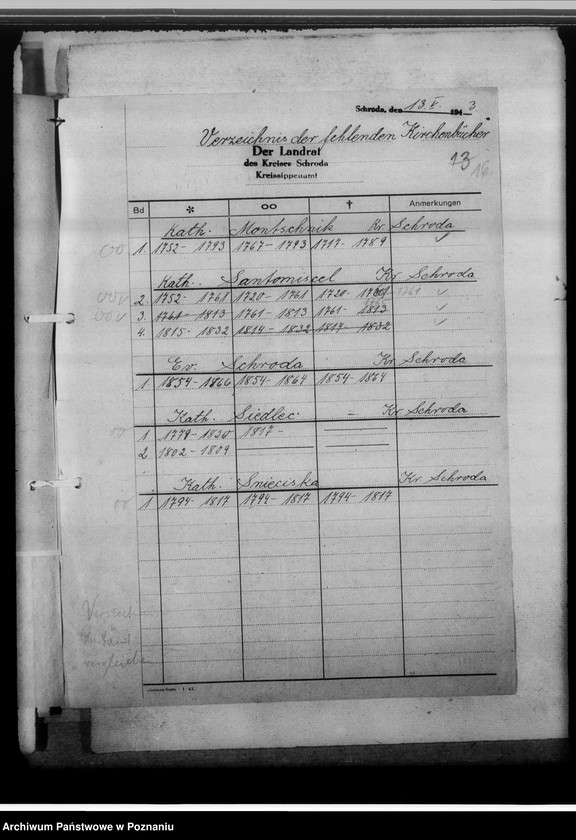 Schroda, den 13. V. 194 3
Verzeichnis der fehlenden Kirchenbücher
Der Landrat
des Kreises Schroda
Kreissippenamt
13 16
Bd * oo † Anmerkungen
Kath. Montschnik Kr. Schroda
1. 1752 - 1793 1767 - 1793 1717 - 1789
Kath. Santomischel Kr Schroda
2. 1752 - 1761 1720 - 1761 1720 - 1761
3. 1761 - 1813 1761 - 1813 1761 - 1813
4. 1815 - 1832 1814 - 1832 1817 - 1832
Ev. Schroda Kr. Schroda
1 1854 - 1866 1854 - 1864 1854 - 1864
Kath. Siedlec = Kr Schroda
1 1779 - 1826 1817 -
2 1802 - 1809
Kath. Snieciska Kr Schroda
1 1794 - 1817 1794 - 1817 1794 - 1817
Archiwum Państwowe w Poznaniu